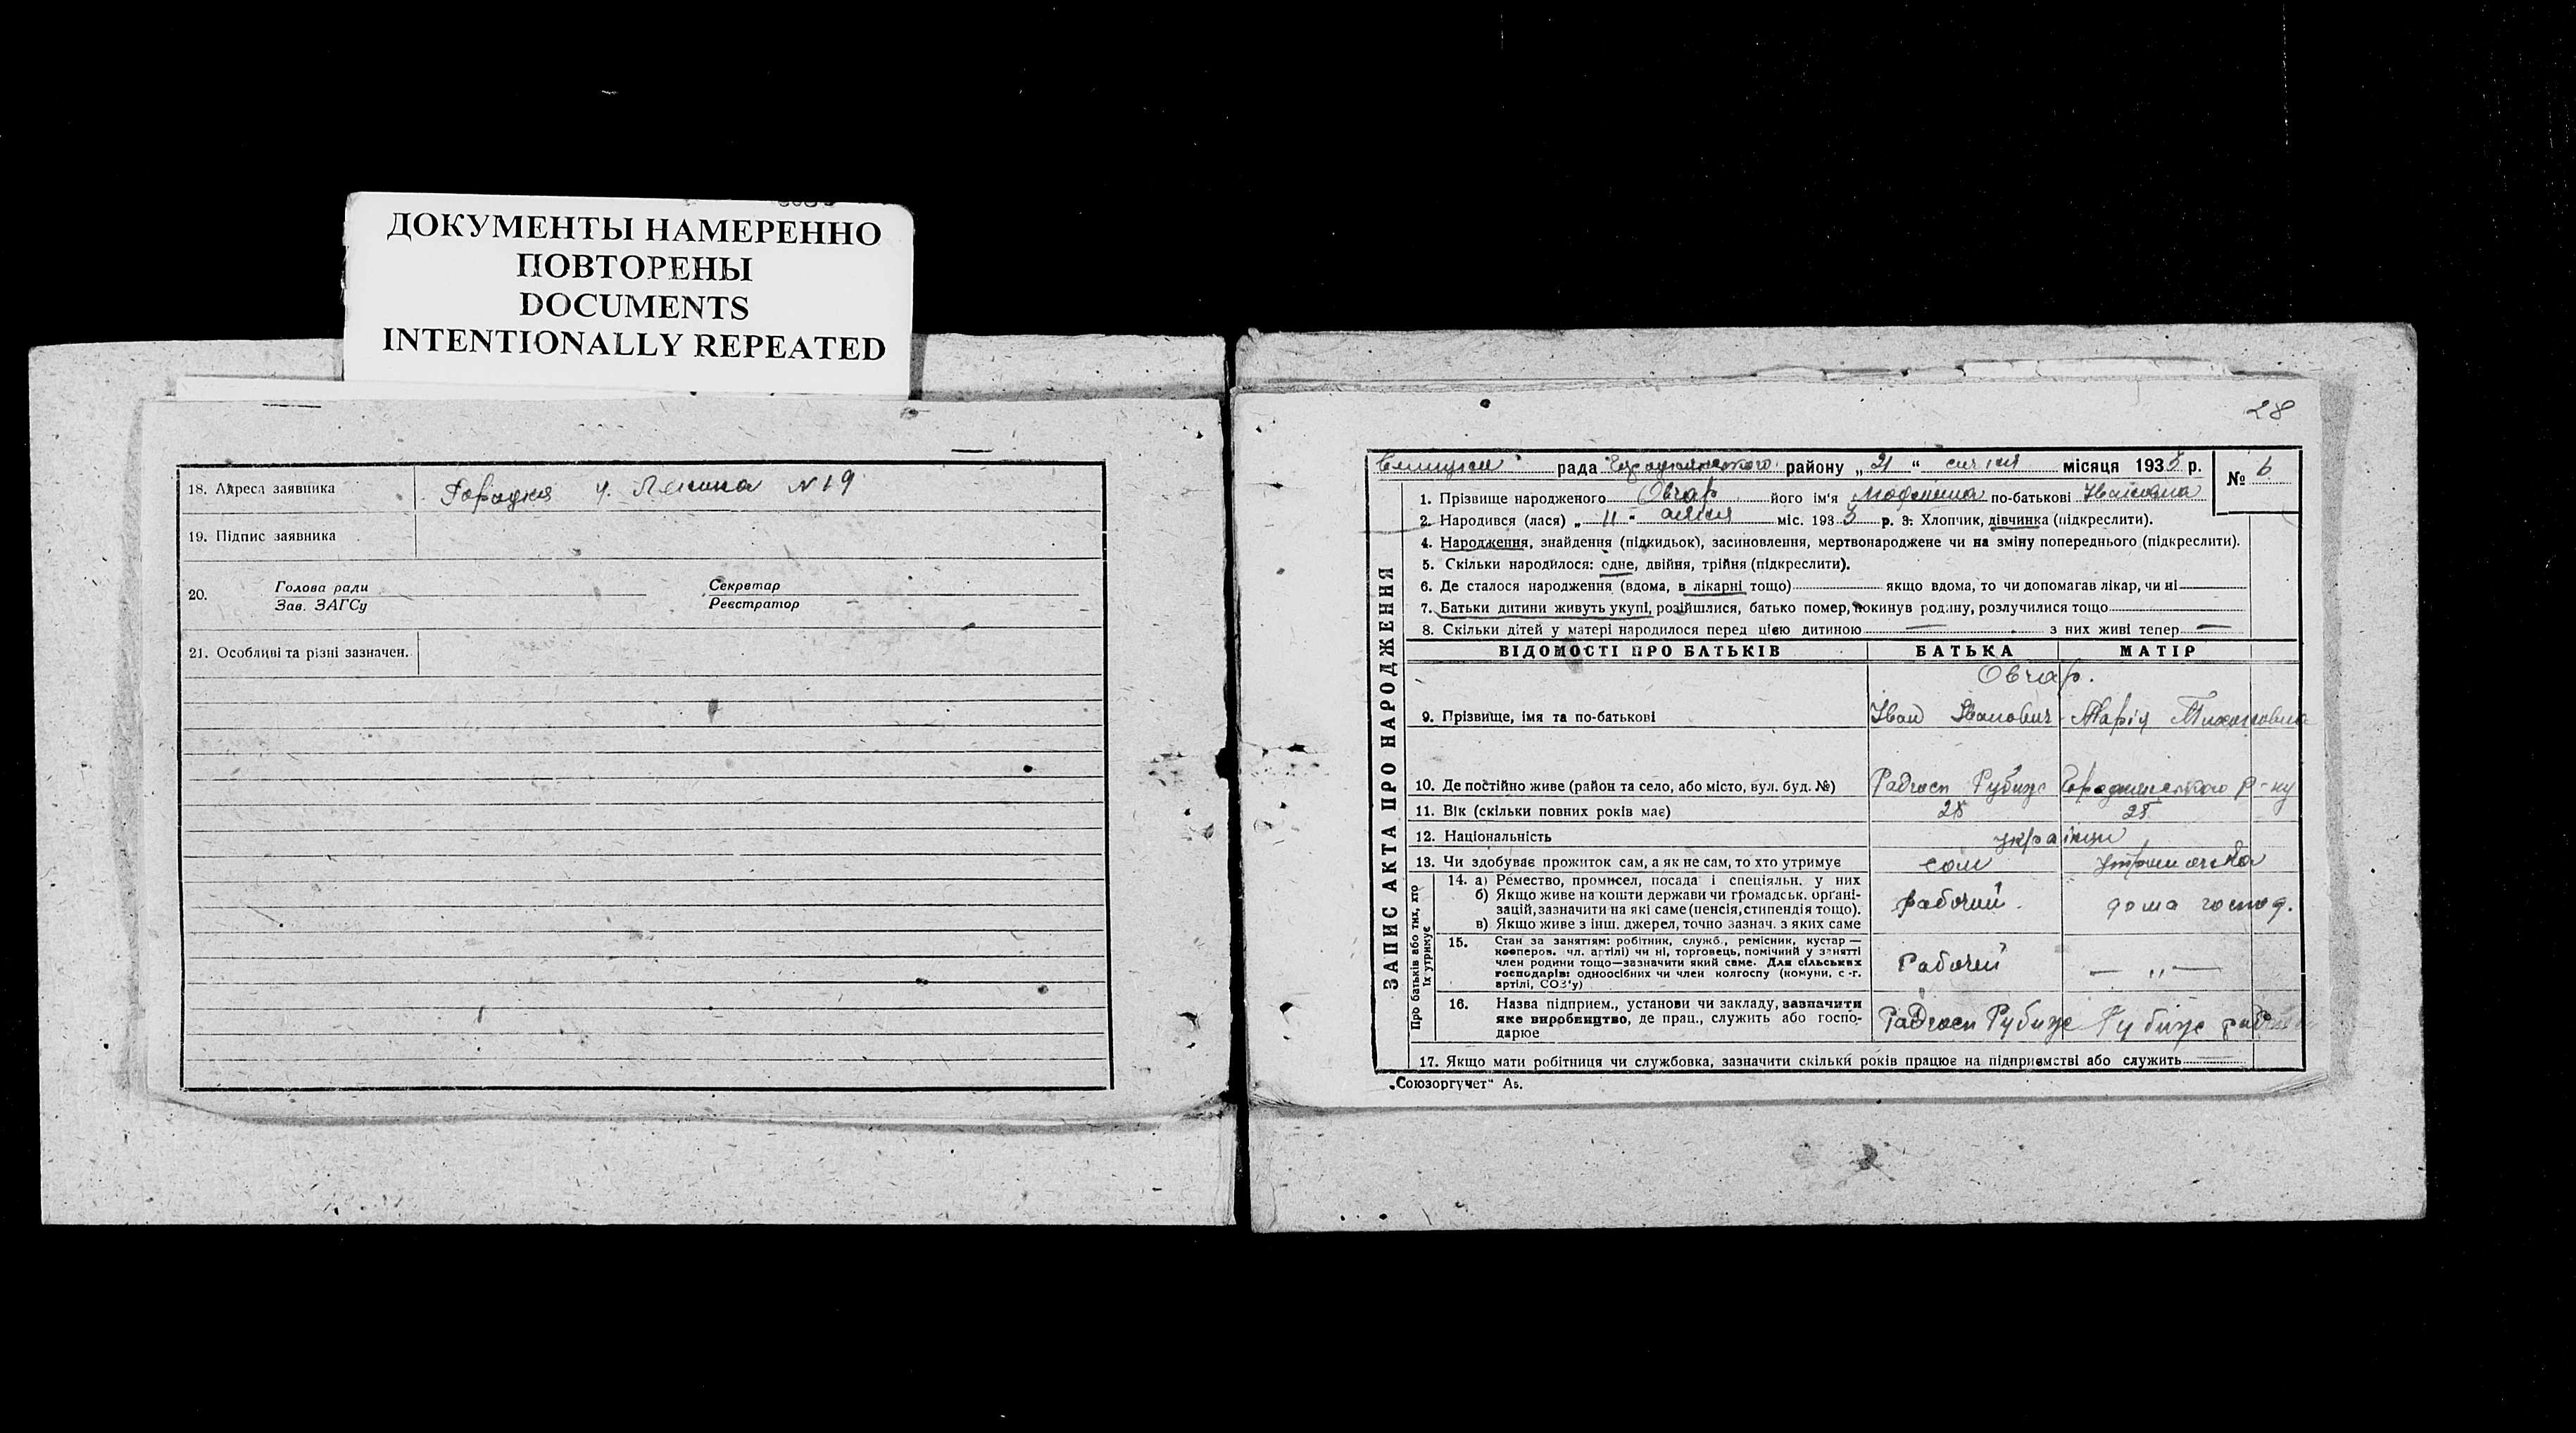 ДОКУМЕНТЫ НАМЕРЕННО
ПОВТОРЕНЫ
DOCUMENTS
INTENTIONALLY REPEATED
18. Адреса заявника
Городня у. Леніна N 19
19. Підпис заявника
20. Голова ради Секретар
Зав. ЗАГСу Реєстратор
21. Особливі та різні зазначен.
28
ЗАПИС АКТА ПРО НАРОДЖЕННЯ
рада району „21“ січня місяця 1935 р. № 6
1. Прізвище народженого Овчар його ім'я по-батькові Івановна
2. Народився (лася) „11“ січня міс. 1935 р. 3. Хлопчик, дівчинка (підкреслити).
4. Народження, знайдення (підкидьок), засиновлення, мертвонароджене чи на зміну попереднього (підкреслити).
5. Скільки народилося: одне, двійня, трійня (підкреслити).
6. Де сталося народження (вдома, в лікарні тощо) якщо вдома, то чи допомагав лікар, чи ні
7. Батьки дитини живуть укупі, розійшлися, батько помер, покинув родину, розлучилися тощо
8. Скільки дітей у матері народилося перед цією дитиною — з них живі тепер —
ВІДОМОСТІ ПРО БАТЬКІВ БАТЬКА МАТІР
Овчар.
9. Прізвище, імя та по-батькові Іван Іванович Марія
10. Де постійно живе (район та село, або місто, вул. буд. №) Радгосп Рубиж Городнянського р-ну
11. Вік (скільки повних років має) 28 28
12. Національність українці
13. Чи здобуває прожиток сам, а як не сам, то хто утримує сам
Про батьків або тих, хто їх утримує
14. а) Ремество, промисел, посада і спеціяльн. у них
б) Якщо живе на кошти держави чи громадськ. органі-
зацій, зазначити на які саме (пенсія, стипендія тощо).
в) Якщо живе з інш. джерел, точно зазнач. з яких саме
рабочий дома господ.
15. Стан за заняттям: робітник, служб., ремісник, кустар —
кооперов. чл. артілі) чи ні, торговець, помічний у занятті
член родини тощо—зазначити який саме. Для сільських
господарів: одноосібних чи член колгоспу (комуни, с.-г.
артілі, СОЗ'у)
Рабочий — „ —
16. Назва підприєм., установи чи закладу, зазначити
яке виробництво, де прац., служить або госпо-
дарює
Радгосп Рубиж Рубиж
17. Якщо мати робітниця чи службовка, зазначити скільки років працює на підприємстві або служить
„Союзоргучет“ А5.